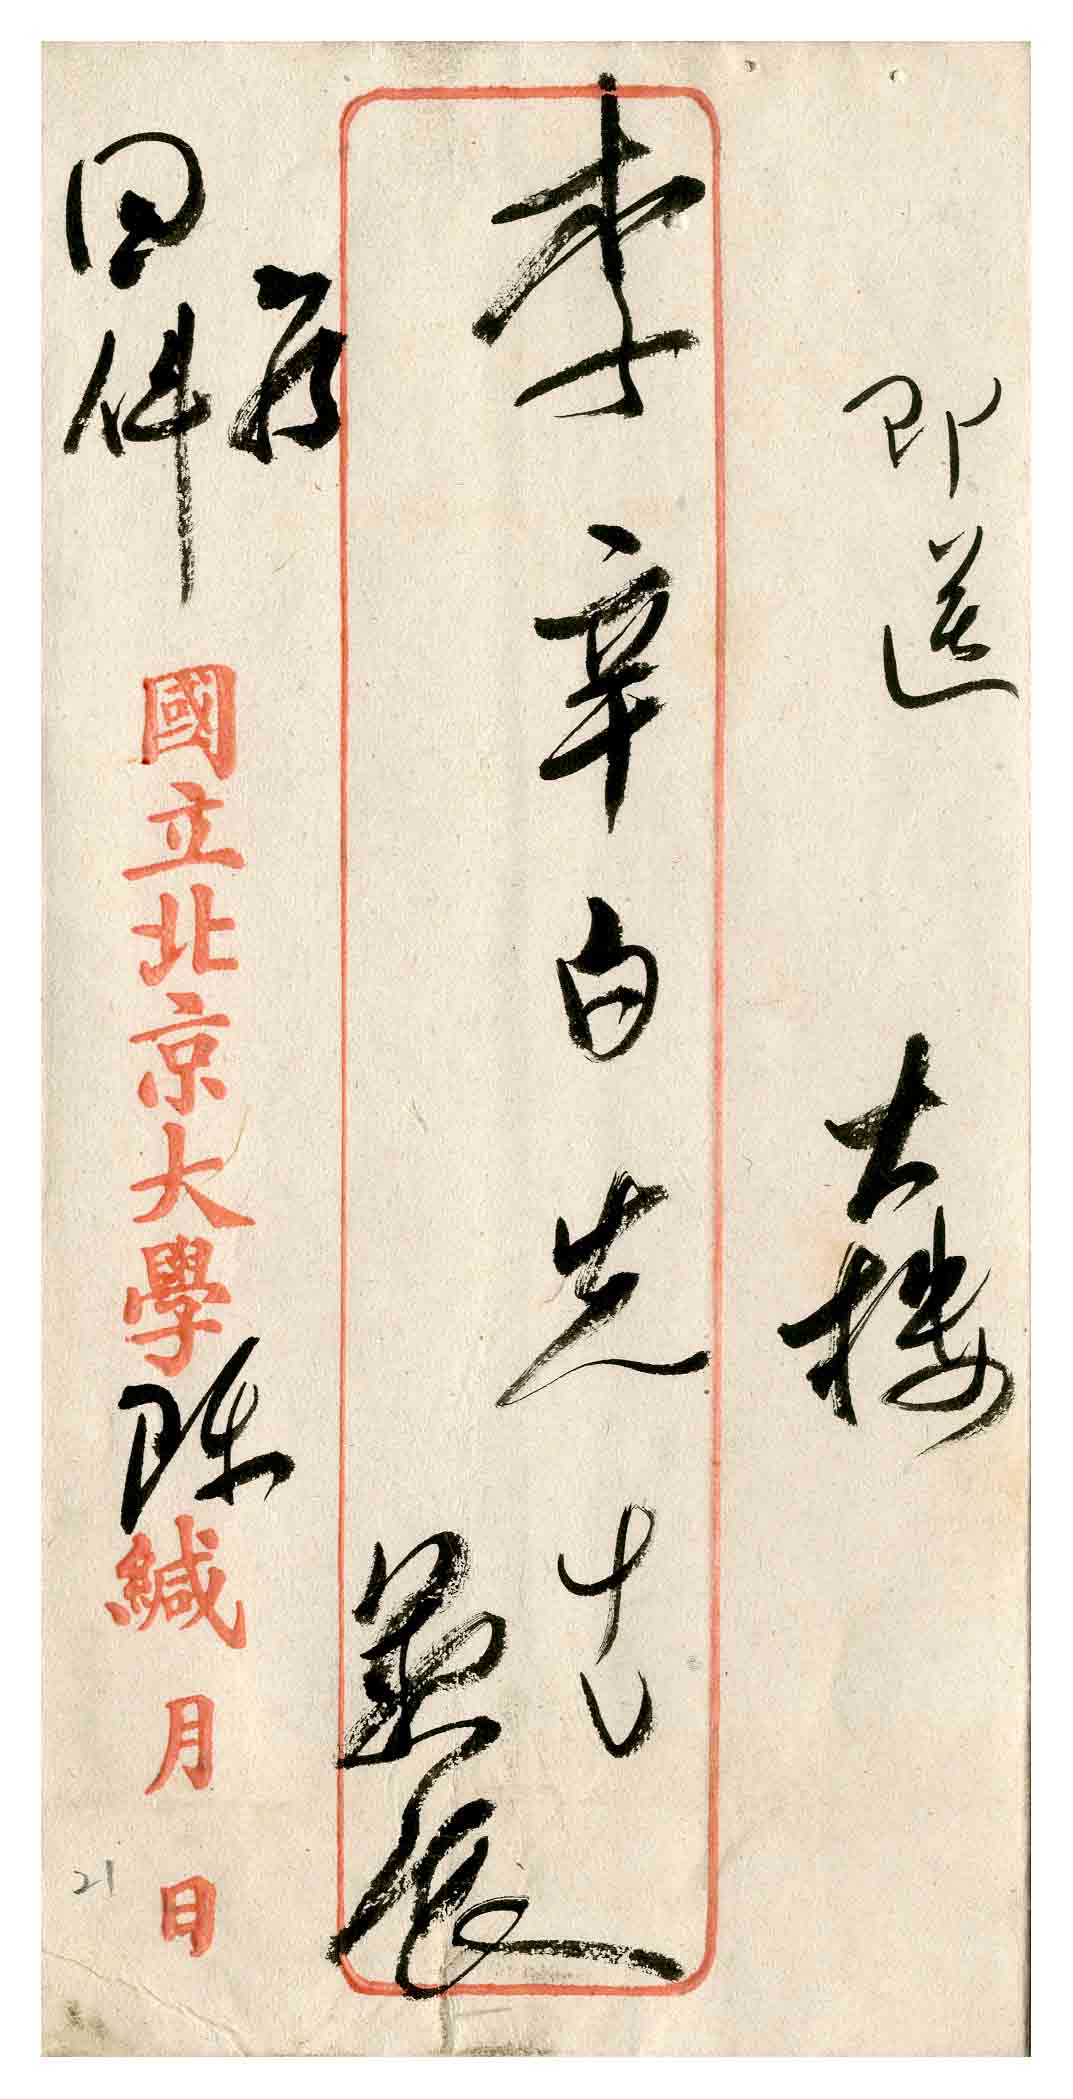 即送 大樓
李辛白先生
展
回件
國立北京大學陳緘 月 日
21